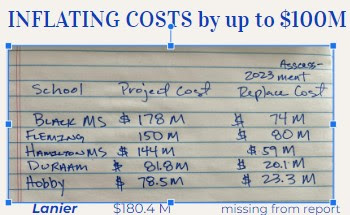 INFLATING COSTS by up to $100M
Assess-
2023 ment
School Project Cost Replace Cost
BLACK MS $ 178 M $ 74 M
FLEMING 150 M $ 80 M
HAMILTON MS $ 144 M $ 59 M
DURHAM $ 81.8 M $ 20.1 M
Hobby $ 78.5 M $ 23.3 M
Lanier $180.4 M missing from report